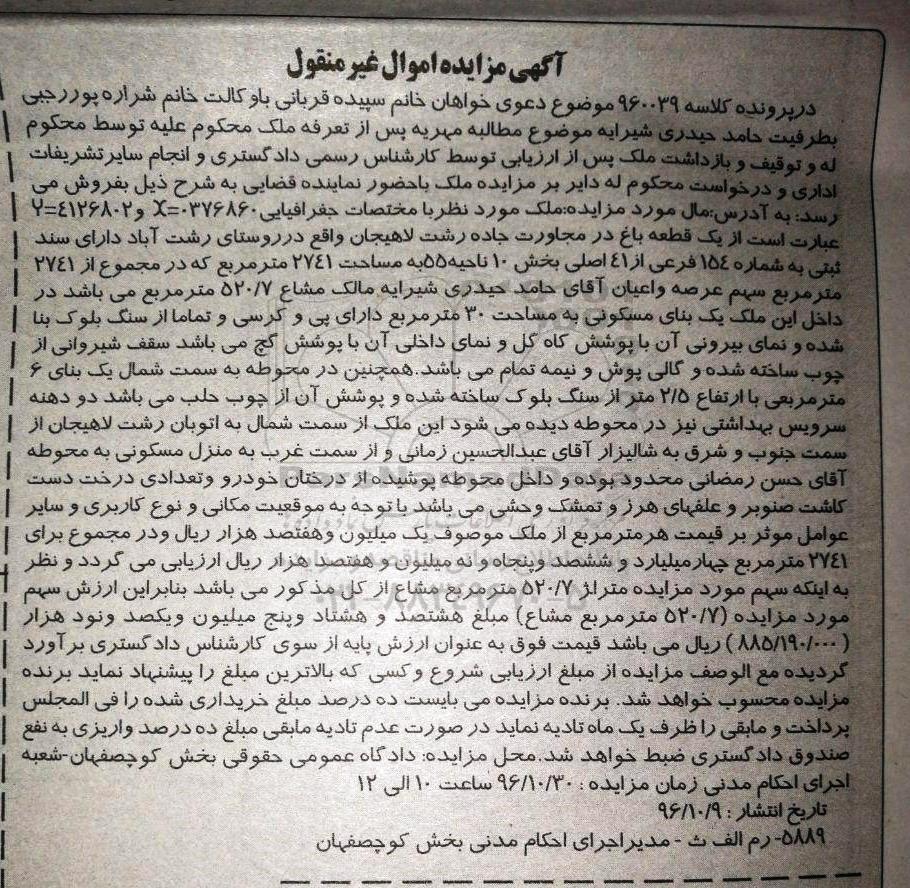 آگهی مزایده اموال غیر منقول
درپرونده کلاسه ۹۶۰۰۳۹ موضوع دعوی خواهان خانم سپیده قربانی باوکالت خانم شراره پوررجبی
بطرفیت حامد حیدری شیرایه موضوع مطالبه مهریه پس از تعرفه ملک محکوم علیه توسط محکوم
له و توقیف و بازداشت ملک پس از ارزیابی توسط کارشناس رسمی دادگستری و انجام سایرتشریفات
اداری و درخواست محکوم له دایر بر مزایده ملک باحضور نماینده قضایی به شرح ذیل بفروش می
رسد: به آدرس:مال مورد مزایده:ملک مورد نظربا مختصات جغرافیایی X=۰۳۷۶۸۶۰ وY=٤١٢٦٨٠٢
عبارت است از یک قطعه باغ در مجاورت جاده رشت لاهیجان واقع درروستای رشت آباد دارای سند
ثبتی به شماره ١٥٤ فرعی از٤١ اصلی بخش ۱۰ ناحیه۵۵به مساحت ۲۷٤۱ مترمربع که در مجموع از ۲۷٤۱
مترمربع سهم عرصه واعیان آقای حامد حیدری شیرایه مالک مشاع ۵۲۰/۷ مترمربع می باشد در
داخل این ملک یک بنای مسکونی به مساحت ۳۰ مترمربع دارای پی و کرسی و تماما از سنگ بلوک بنا
شده و نمای بیرونی آن با پوشش کاه گل و نمای داخلی آن با پوشش گچ می باشد سقف شیروانی از
چوب ساخته شده و گالی پوش و نیمه تمام می باشد.همچنین در محوطه به سمت شمال یک بنای ۶
مترمربعی با ارتفاع ۲/۵ متر از سنگ بلوک ساخته شده و پوشش آن از چوب حلب می باشد دو دهنه
سرویس بهداشتی نیز در محوطه دیده می شود این ملک از سمت شمال به اتوبان رشت لاهیجان از
سمت جنوب و شرق به شالیزار آقای عبدالحسین زمانی و از سمت غرب به منزل مسکونی به محوطه
آقای حسن رمضانی محدود بوده و داخل محوطه پوشیده از درختان خودرو وتعدادی درخت دست
کاشت صنوبر و علفهای هرز و تمشک وحشی می باشد با توجه به موقعیت مکانی و نوع کاربری و سایر
عوامل موثر بر قیمت هرمترمربع از ملک موصوف یک میلیون وهفتصد هزار ریال ودر مجموع برای
۲۷٤۱ مترمربع چهارمیلیارد و ششصد وپنجاه و نه میلیون و هفتصد هزار ریال ارزیابی می گردد و نظر
به اینکه سهم مورد مزایده متراژ ۵۲۰/۷ مترمربع مشاع از کل مذکور می باشد بنابراین ارزش سهم
مورد مزایده (۵۲۰/۷ مترمربع مشاع) مبلغ هشتصد و هشتاد وپنج میلیون ویکصد ونود هزار
( ۸۸۵/۱۹۰/۰۰۰ ) ریال می باشد قیمت فوق به عنوان ارزش پایه از سوی کارشناس دادگستری برآورد
گردیده مع الوصف مزایده از مبلغ ارزیابی شروع و کسی که بالاترین مبلغ را پیشنهاد نماید برنده
مزایده محسوب خواهد شد. برنده مزایده می بایست ده درصد مبلغ خریداری شده را فی المجلس
پرداخت و مابقی را ظرف یک ماه تادیه نماید در صورت عدم تادیه مابقی مبلغ ده درصد واریزی به نفع
صندوق دادگستری ضبط خواهد شد.محل مزایده: دادگاه عمومی حقوقی بخش کوچصفهان-شعبه
اجرای احکام مدنی زمان مزایده : ۹۶/۱۰/۳۰ ساعت ۱۰ الی ۱۲
تاریخ انتشار : ۹۶/۱۰/۹
۵۸۸۹- رم الف ث - مدیراجرای احکام مدنی بخش کوچصفهان